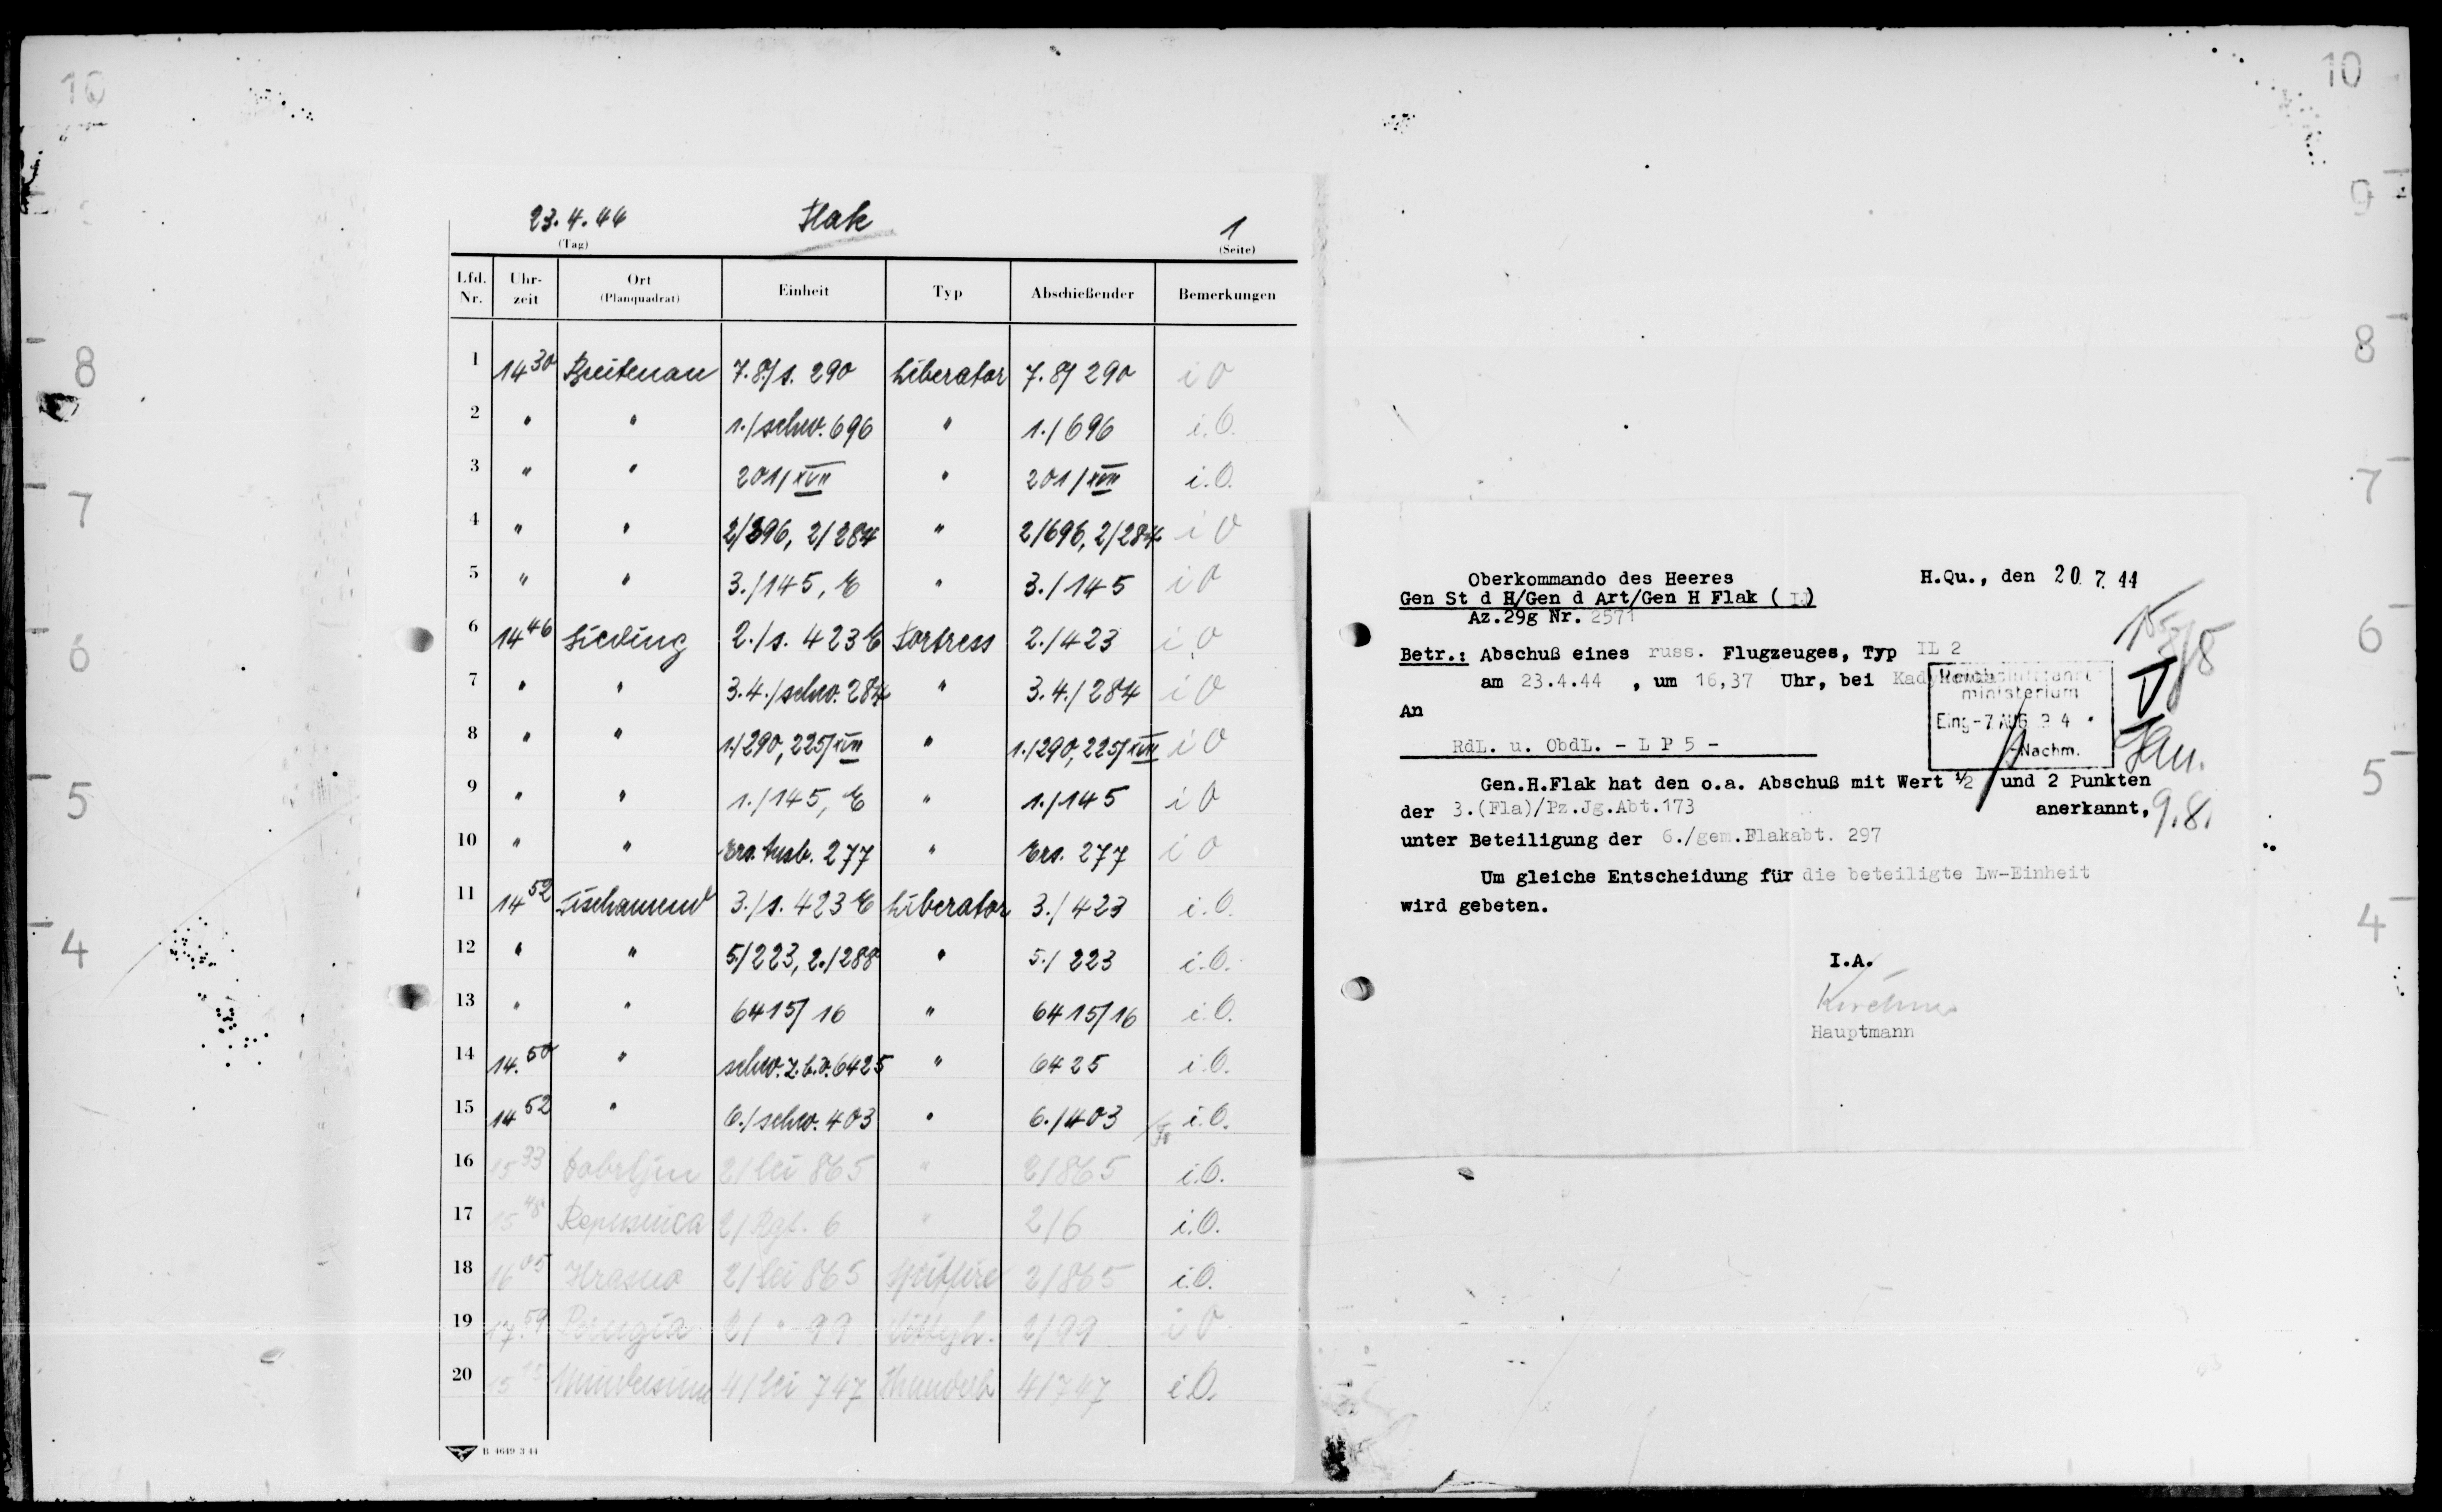 10
10
9
8
8
7
7
6
6
5
5
4
4
23.4.44 Flak 1
(Tag) (Seite)
Lfd. Nr. Uhr-zeit Ort (Planquadrat) Einheit Typ Abschießender Bemerkungen
1 14 30 Breitenau 7.8/s. 290 Liberator 7.8/ 290 i O
2 " " 1./schw. 696 " 1./696 i.O.
3 " " 201/XVII " 201/XVII i.O.
4 " " 2/696, 2/284 " 2/696, 2/284 i O
5 " " 3./145, E " 3./145 i O
6 14 46 Sieding 2./s. 423 E Fortress 2./423 i.O
7 " " 3.4./schw. 284 " 3.4./284 i O
8 " " 1./290, 225/XVII " 1./290, 225/XVII i O
9 " " 1./145, E " 1./145 i O
10 " " Ers. Ausb. 277 " Ers. 277 i O
11 14 52 Fischamend 3./s. 423 E Liberator 3./423 i.O.
12 " " 5./223, 2./288 " 5./223 i.O.
13 " " 6415/16 " 6415/16 i.O.
14 14.50 " schw. z.b.V. 6425 " 6425 i.O.
15 14 52 " 6./schw. 403 " 6./403 i.O.
16 15 33 Dobrljin 2/lei 865 " 2/865 i.O.
17 15 48 2/Rgt. 6 " 2/6 i.O.
18 16 05 Hrasno 2/lei 865 Spitfire 2/865 i.O.
19 17.59 Perugia 2/ " 99 2/99 i O
20 15 4/lei 747 Thunderb 4/747 i.O.
B 4649 3 44
Oberkommando des Heeres H.Qu., den 20 7. 44
Gen St d H/Gen d Art/Gen H Flak ( )
Az.29g Nr. 2571
Betr.: Abschuß eines russ. Flugzeuges, Typ IL 2
am 23.4.44 , um 16,37 Uhr, bei
Reichsluftfahrt-
ministerium
Eing-7 AUG
Nachm.
An
RdL. u. ObdL. - L P 5 -
Gen.H.Flak hat den o.a. Abschuß mit Wert ½ und 2 Punkten
der 3.(Fla)/Pz.Jg.Abt.173 anerkannt,
9.8.
unter Beteiligung der 6./gem.Flakabt. 297
Um gleiche Entscheidung für die beteiligte Lw-Einheit
wird gebeten.
I.A.
Hauptmann